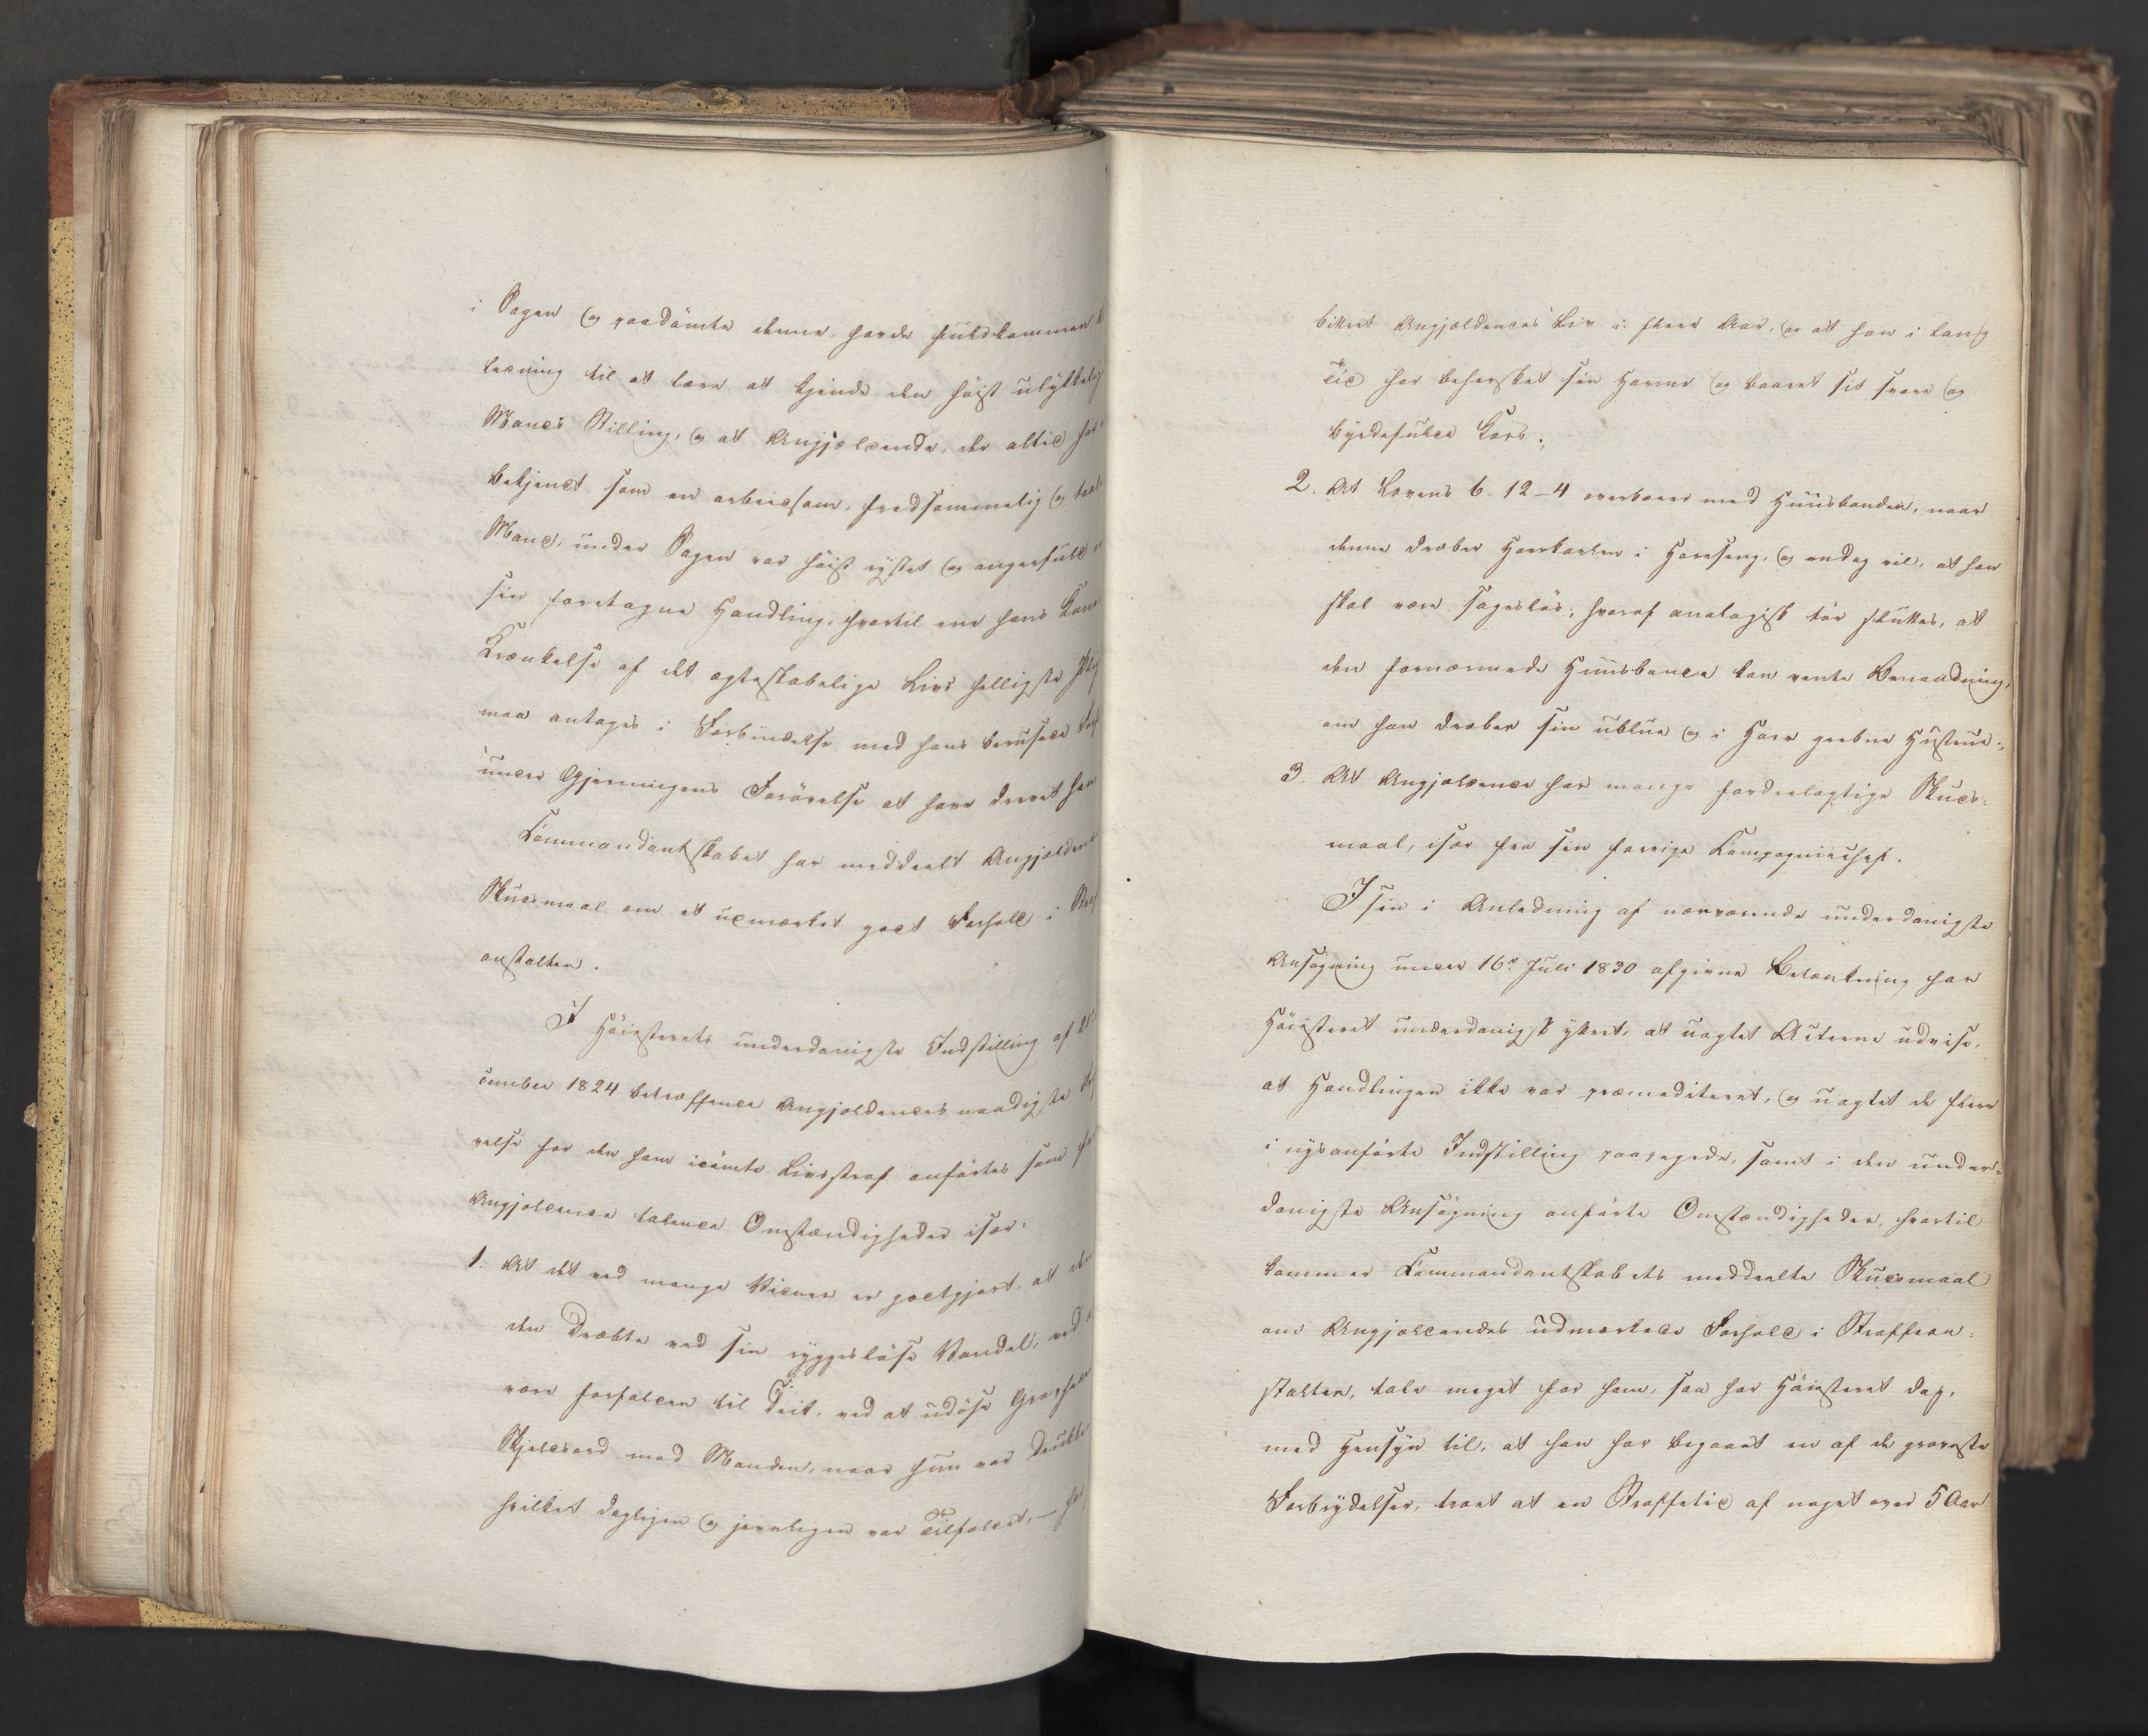 i Sagen og paadömte denne, havde fuldkommen
ledning til at lære at kjende den höist ulykkelig
Mands Stilling, og at Angjældende, der altid har
bekjendt som en arbeidsom, fredsommelig og
Mand, under Sagen var höist rystet og angerfuld
sin foretagne Handling, hvortil ene hans Kone
Krænkelse af det ægteskabelige Livs helligste
maa antages i Forbindelse med hans berusede
under Gjerningens Forövelse at have drevet ham
Commandantskabet har meddeelt Angjældende
Skudsmaal om et udmærket godt Forhold i
anstalten.
I Höiesterets underdanigste Indstilling af 21
cember 1824 betræffende Angjældendes naadigste
velse for den ham idömte Livsstraf anförtes som for
Angjældende talende Omstændigheder især:
1. At det ved mange Vidner er godtgjort, at
den Dræbte ved sin ryggeslöse Vandel, ved
være forfalden til Drik, ved at udöse Grovheder
Skjelsord mod Manden, naar hun var Drukken
hvilket dagligen og jevnligen var Tilfældet, – har
bittret Angjældendes Liv i flere Aar, og at han i lang
Tid har behersket sin Harme og baaret sit svare og
byrdefulde Kors;
2. At Lovens 6-12-4 overbærer med Huusbonden, naar
denne dræber Hoerkarlen i Horeseng, og endog vil, at han
skal være sageslös; hvoraf analogisk tör sluttes, at
den fornærmede Huusbonde kan vente Benaadning,
om han dræber sin ublue og i Hoer grebne Hustrue;
3. At Angjældende har mange fordeelagtige Skuds-
maal, især fra sin forrige Compagniechef.
I sin i Anledning af nærværende underdanigste
Ansögning under 16de Juli 1830 afgivne Betænkning har
Höiesteret underdanigst yttret, at uagtet Acterne udvise,
at Handlingen ikke var præmediteret, og uagtet de flere
i nysanförte Indstilling paapegede, samt i den under-
danigste Ansögning anförte Omstændigheder, hvortil
kommer Commandantskabets meddeelte Skudsmaal
om Angjældendes udmærkede Forhold i Straffean-
stalten, tale meget for ham, saa har Höiesteret dog,
med Hensyn til, at han har begaaet en af de groveste
Forbrydelser, troet at en Straffetid af noget over 5 Aar